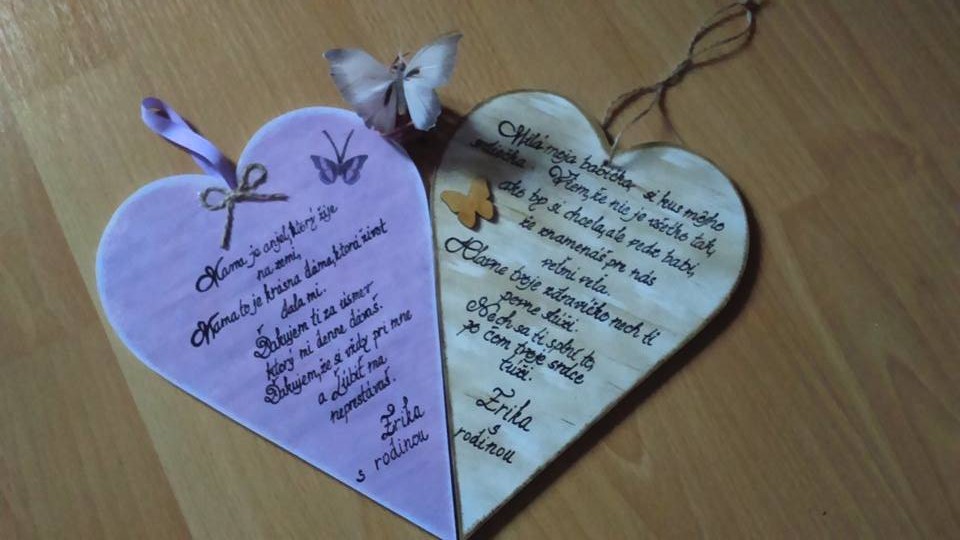 Mama je anjel,ktorý žije
na zemi,
Mama to je krásna dáma,ktorá život
dala mi.
Ďakujem ti za úsmev
ktorý mi denne dávaš.
Ďakujem,že si vždy pri mne
a Ľúbiť ma
neprestávaš.
Erika
s rodinou
Milá moja babička, si kus môjho
srdiečka.
Viem,že nie je všetko tak,
ako by si chcela,ale vedz babi,
že znamenáš pre nás
veľmi veľa.
Hlavne tvoje zdravíčko nech ti
pevne slúži.
Nech sa ti splní to,
po čom tvoje srdce
túži.
Erika
s
rodinou